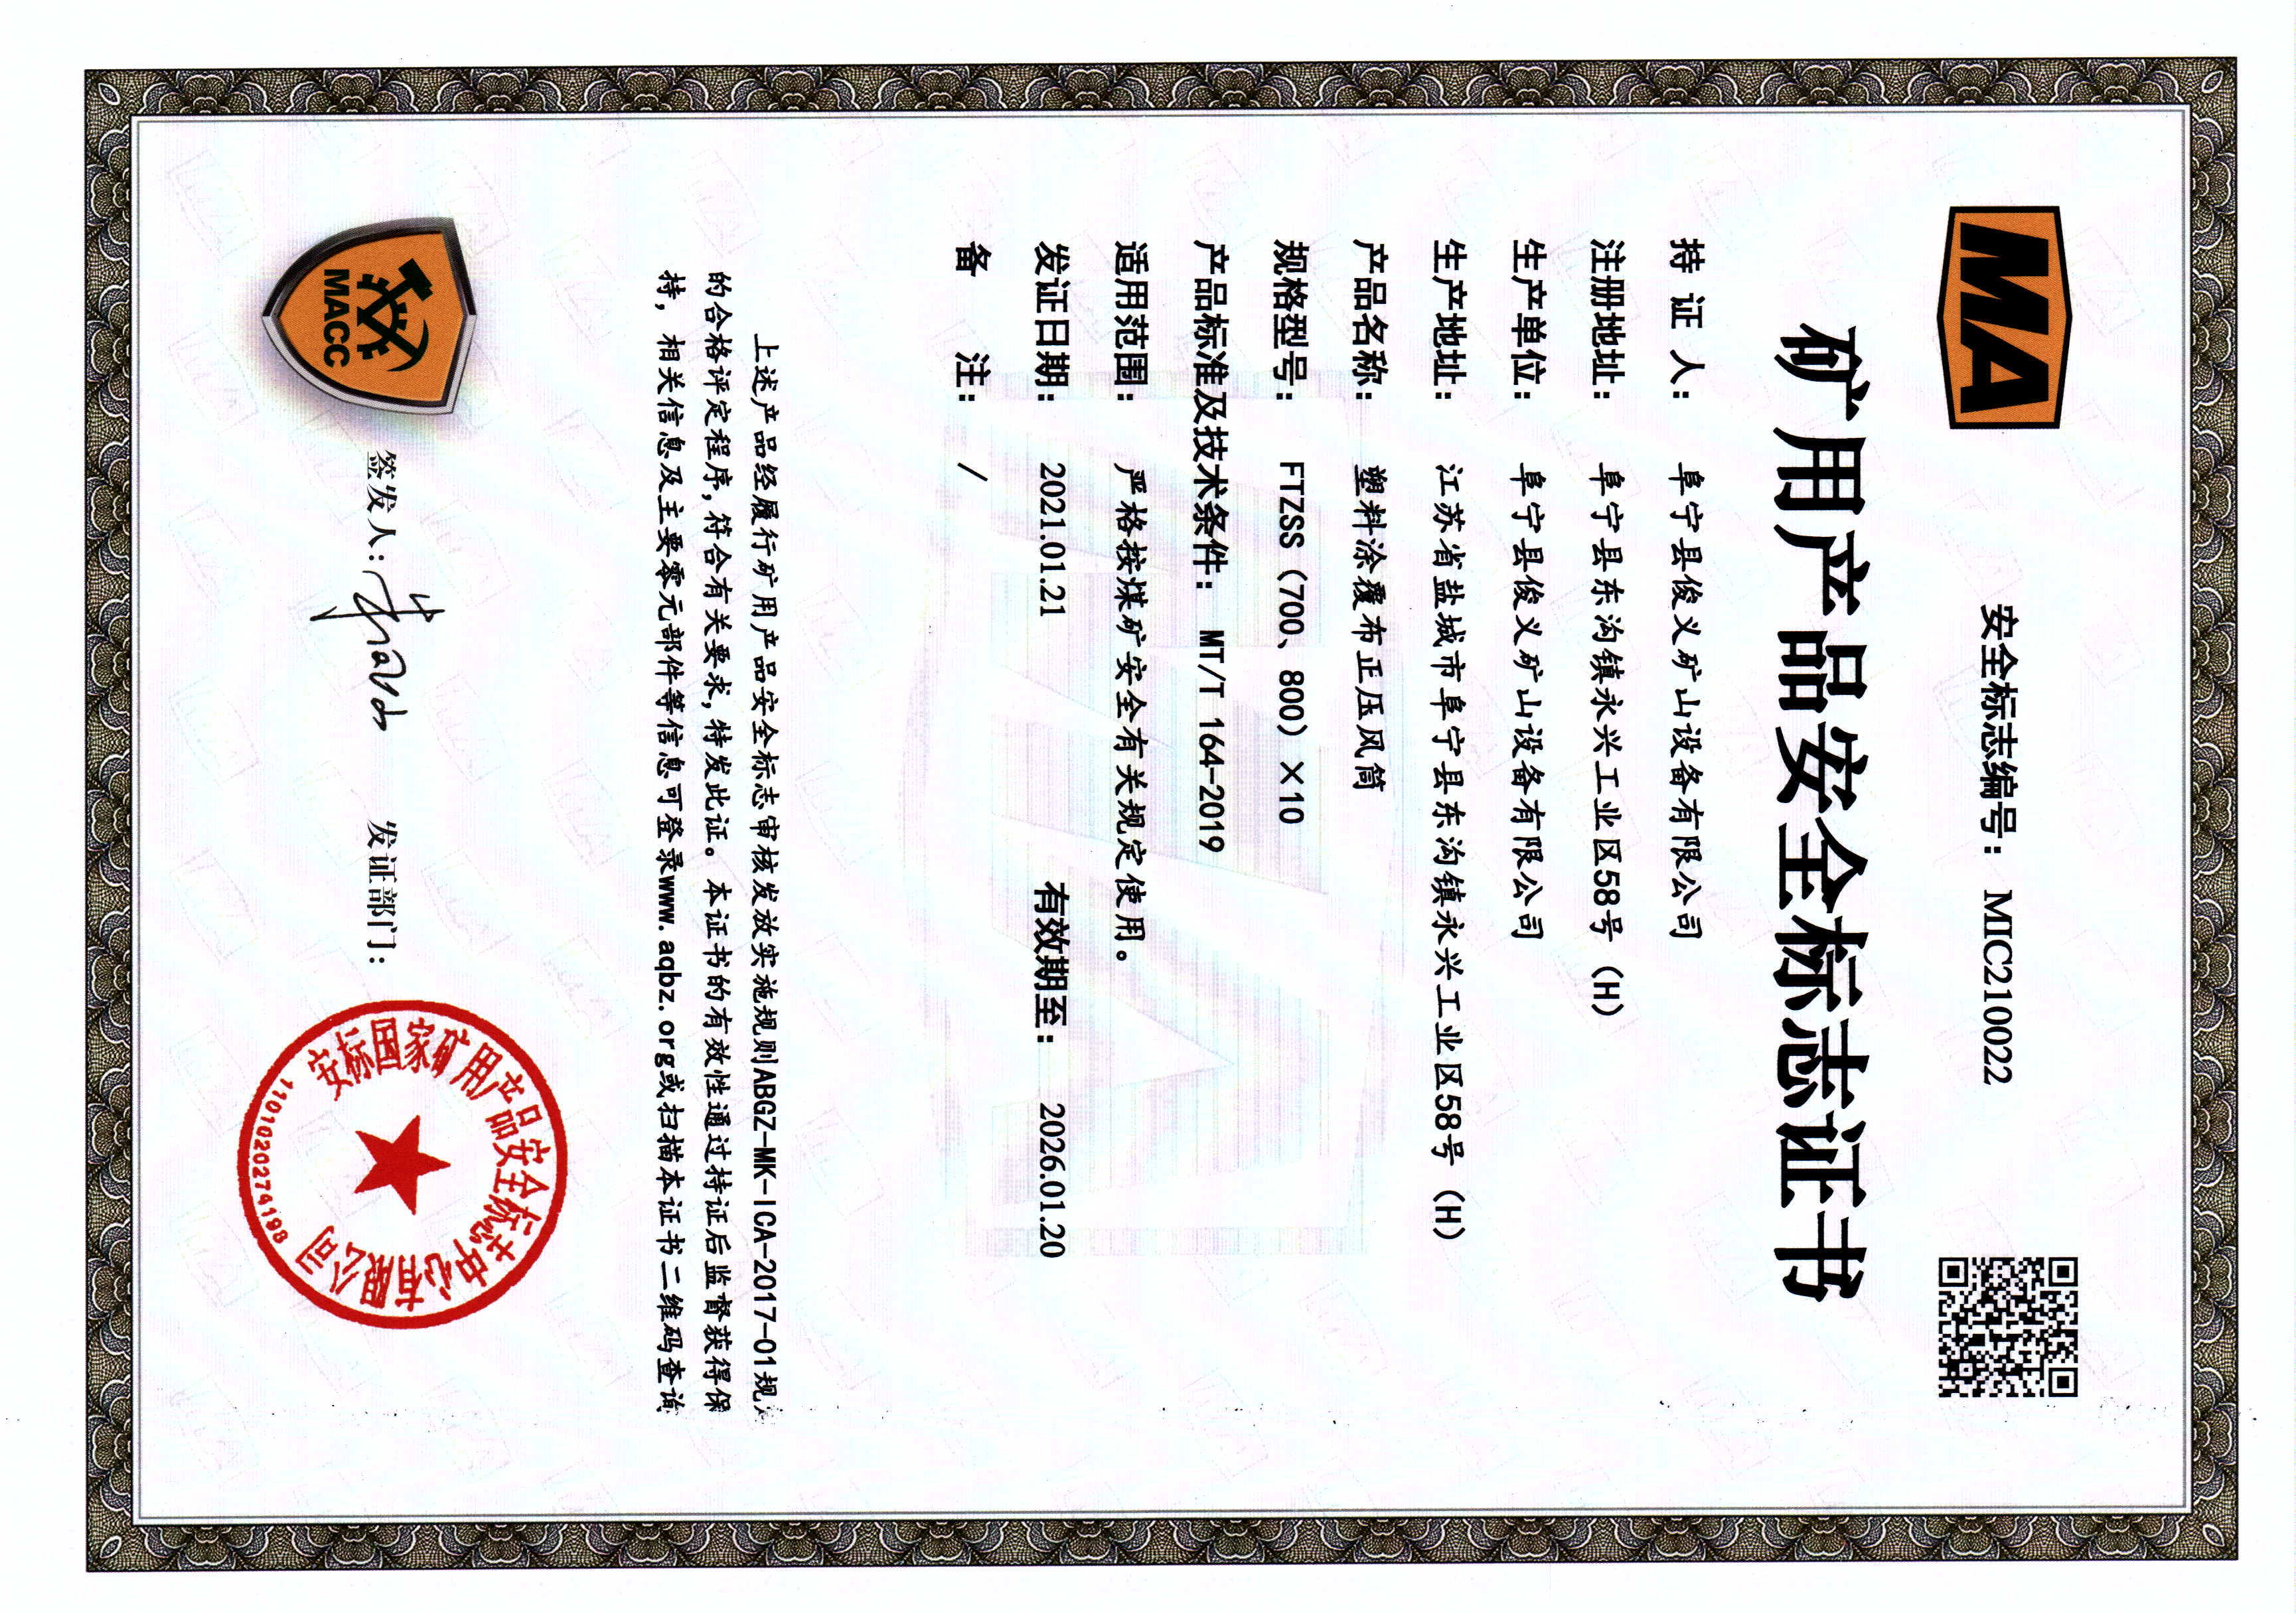 MA
安全标志编号： MIC210022
矿用产品安全标志证书
持 证 人： 阜宁县俊义矿山设备有限公司
注册地址： 阜宁县东沟镇永兴工业区58号（H）
生产单位： 阜宁县俊义矿山设备有限公司
生产地址： 江苏省盐城市阜宁县东沟镇永兴工业区58号（H）
产品名称： 塑料涂覆布正压风筒
规格型号： FTZSS（700、800）×10
产品标准及技术条件： MT/T 164-2019
适用范围： 严格按煤矿安全有关规定使用。
发证日期： 2021.01.21 有效期至： 2026.01.20
备 注： /
上述产品经履行矿用产品安全标志审核发放实施规则ABGZ-MK-ICA-2017-01规
的合格评定程序，符合有关要求，特发此证。本证书的有效性通过持证后监督获得保
持，相关信息及主要零元部件等信息可登录www.aqbz.org或扫描本证书二维码查询
MACC
签发人：
发证部门：
安标国家矿用产品安全标志中心有限公司
1101020274198